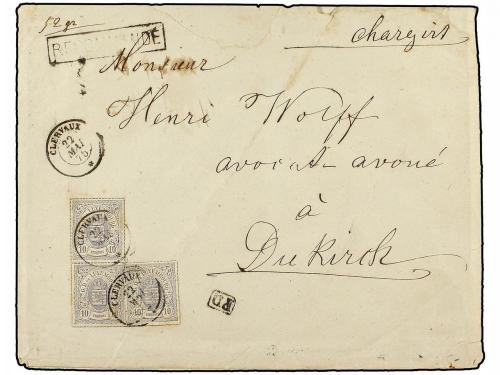 52 gr
chargirt
RECOMMANDÉ
Monsieur
Henri Wolff
avocat-avoué
à
Diekirch
CLERVAUX
22
MAI
CLERVAUX
22
10
10
CLERVAUX
22
MAI
10
P.D.